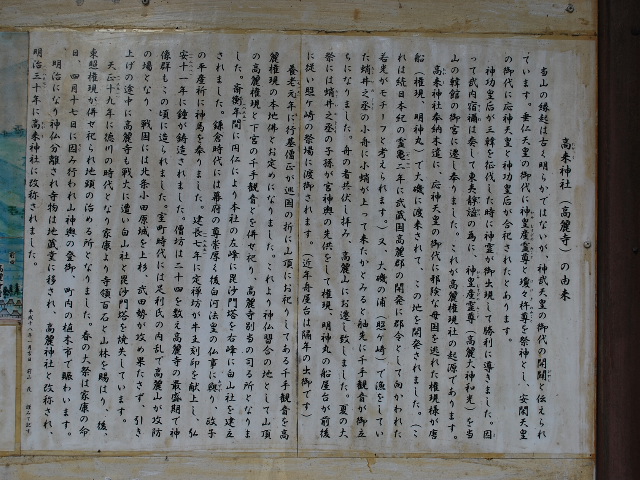 高来神社（高麗寺）の由来
当山の縁起は古く明らかではないが、神武天皇の御代の開闢と伝えられ
ています。垂仁天皇の御代に神皇産霊尊と瓊々杵尊を祭神とし、安閑天皇
の御代に応神天皇と神功皇后が合祀されたとあります。
神功皇后が三韓を征伐した時に神霊が御出現して勝利に導きました。因
って武内宿禰は奏して東夷静謐の為に、神皇産霊尊（高麗大神和光）を当
山の韓館の御宮に遷し奉りました。これが高麗権現社の起源であります。
高来神社奉納木遣に、応神天皇の御代に邪険な母国を逃れた権現様が唐
船（権現、明神丸）で大磯に渡来されて、この地を開発されました。（こ
れは続日本紀の霊亀二年に武蔵国高麗郡の開発に郡令として向かわれた
若光がモチーフと考えられます。）又、大磯の浦（照ヶ崎）で漁をしてい
た蛸井之丞の小舟に小蛸が上って来たかとみると舳先に千手観音が御立
ちになりました。舟の者共伏し拝み、高麗山にお遷し致しました。夏の大
祭には蛸井之丞の子孫が宮神輿の先供をして権現、明神丸の船屋台が前後
に従い照ヶ崎の祭場に渡御されます。（近年舟屋台は隔年の出御です）
養老元年に行基僧正が巡国の折に山頂にお祀りしてある千手観音を高
麗権現の本地佛とお定めになりました。これより神仏習合の地として山頂
の高麗権現と下宮の千手観音とを併せ祀り、高麗寺別当の司る所となりま
した。斎衡年間に円仁により本社の左峰に毘沙門塔を右峰に白山社を建立
されました。鎌倉時代には幕府の尊崇厚く後白河法皇の仏事に預り、政子
の平産祈に神馬を奉りました。建長七年に定禅坊が牛王刻印を献上し、弘
安十一年に鐘が鋳造されました。僧坊は二十四を数え高麗寺の最盛期で神
像群もこの頃に造られました。室町時代には足利氏の内乱で高麗山が攻防
の場となり、戦国には北条小田原城を上杉、武田勢が攻め来たさず、引き
上げの途中に高麗寺も戦火に遭い白山社と毘沙門塔を焼失しています。
天正十九年に徳川の時代となり家康より寺領百石と山林を賜はり、後、
東照権現が併せ祀られ地頭の治める所となりました。春の大祭は家康の命
日、四月十七日に因み行われ山神輿の登御、町内の植木市で賑わいます。
明治になり神仏分離され寺物は地蔵堂に移され、高麗神社と改称され、
明治三十年に高来神社に改称されました。